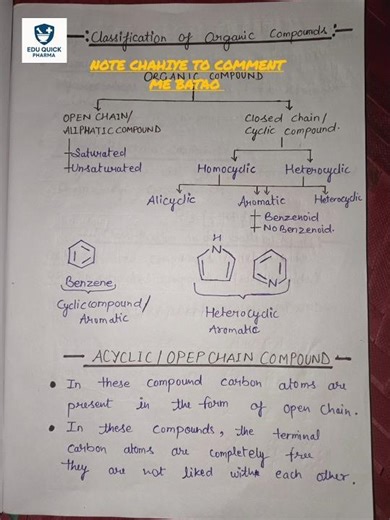 EDU QUICK
PHARMA
:Classification of Organic Compounds:
NOTE CHAHIYE TO COMMENT
ME BATAO
ORGANIC COMPOUND
OPEN CHAIN/
ALIPHATIC COMPOUND
Saturated
Unsaturated
Closed chain/
Cyclic compound.
Homocyclic
Heterocyclic
Alicyclic
Aromatic
Heterocyclic
Benzenoid
NoBenzenoid.
H
N
N
Benzene
Cyclic compound/
Aromatic
Heterocyclic
Aromatic
ACYCLIC/OPEP CHAIN COMPOUND
• In these compound carbon atoms are
present in the form of open chain.
• In these compounds, the terminal
carbon atoms are completely free
they are not liked with each other.